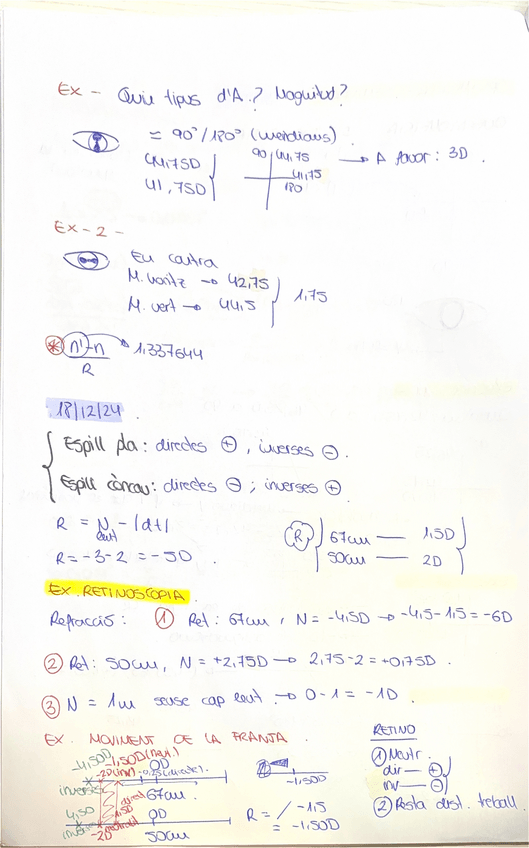 EX - Quin tipus d'A.? Magnitud?
= 90°/180° (meridians)
44,75D
41,75D
90 44,75
41,75
180
→ A favor: 3D.
EX-2-
En contra
M. horitz → 42,75
M. vert → 44,5
1,75
* n'-n → 1,337644
R
18/12/24.
Espill pla: directes ⊕, inverses ⊖.
Espill còncau: directes ⊖; inverses ⊕.
R = N - |dt|
lent
R = -3-2 = -5D.
R
67cm — 1,5D
50cm — 2D
EX. RETINOSCOPIA.
Refracció: ① Ret: 67cm, N = -4,5D → -4,5-1,5 = -6D
② Ret: 50cm, N = +2,75D → 2,75-2 = +0,75D.
③ N = 1m sense cap lent → 0-1 = -1D.
EX. MOVIMENT DE LA FRANJA.
-4,50D -1,50D (neut.) 0D
-2D (inv)
inverses
directes
67cm.
4,5D
0D
-2D
50cm
-1,50D
R = / -1,5
= -1,50D
RETINO
① Neutr.
dir — ⊕
inv — ⊖
② Resta dist. treball.